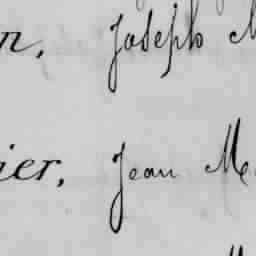 n, Joseph M
ier, Jean M